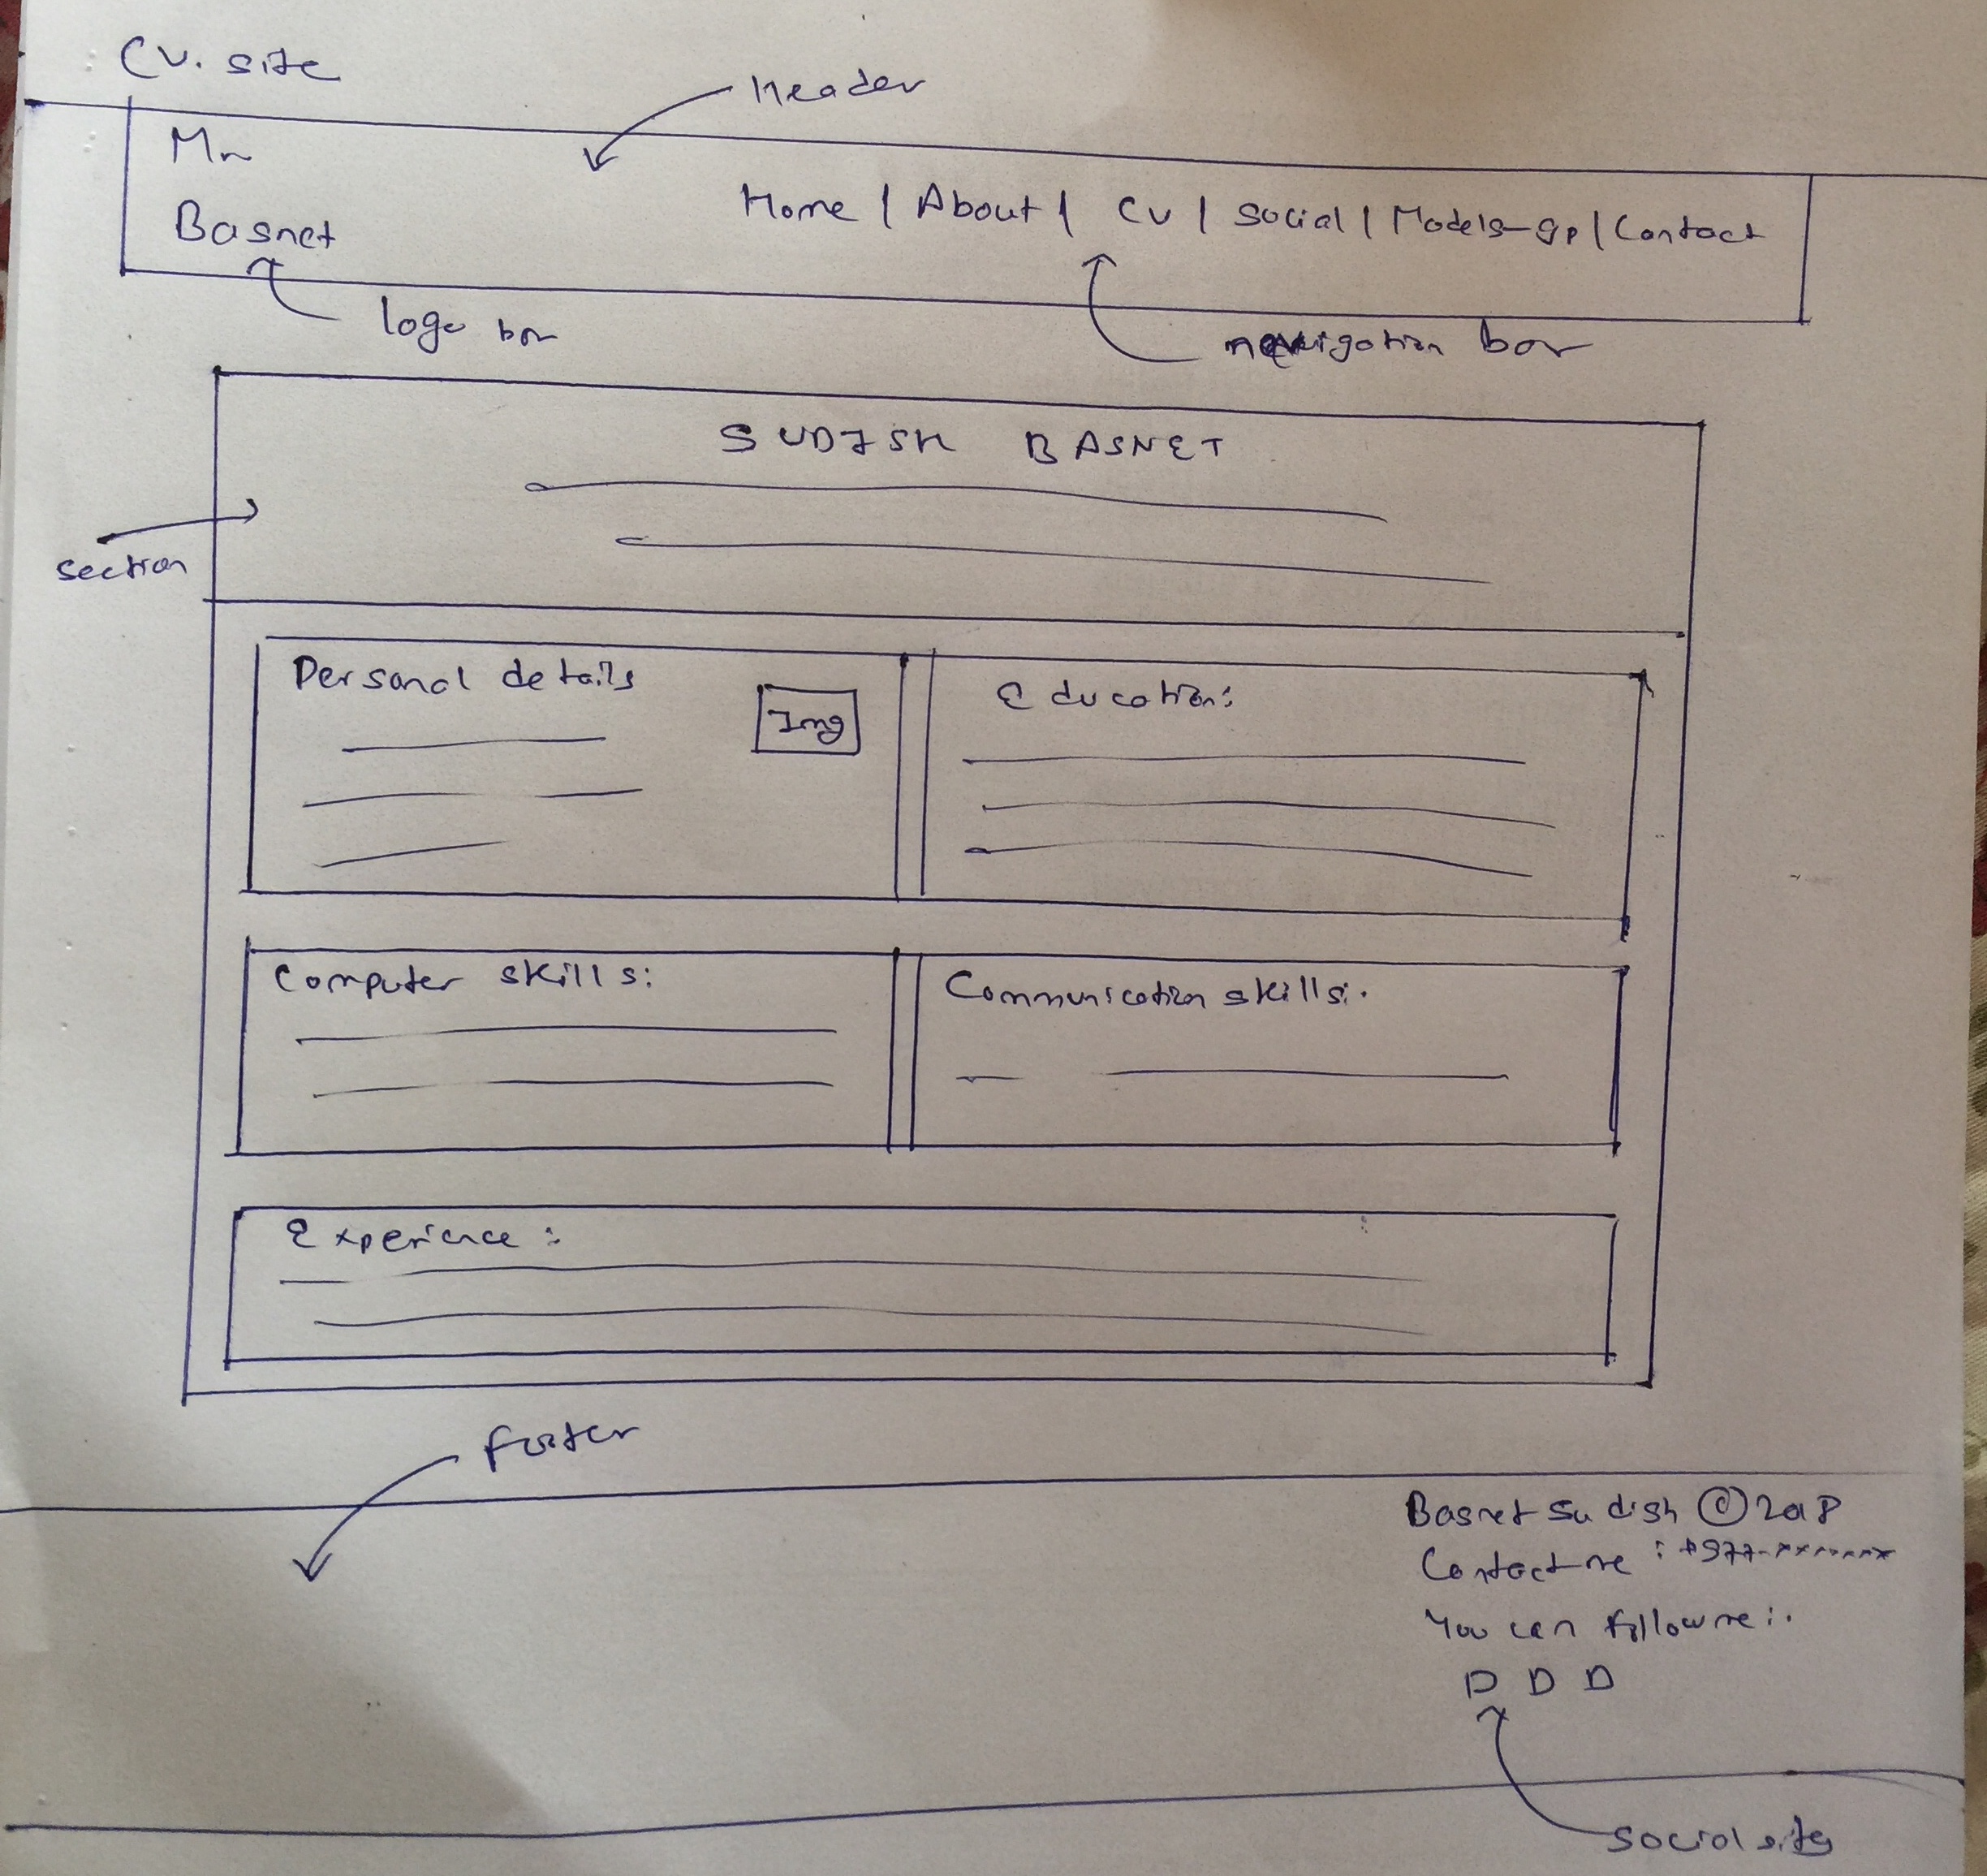 CV. site
Header
Mr
Basnet
Home | About | CV | Social | Models-gp | Contact
logo bar
navigation bar
SUDISH BASNET
section
Personal details
Img
Education:
Computer skills:
Communication skills:.
Experience:
footer
Basnet Sudish © 2018
Contact me : +977-xxxxxxx
You can follow me:.
D D D
social sites